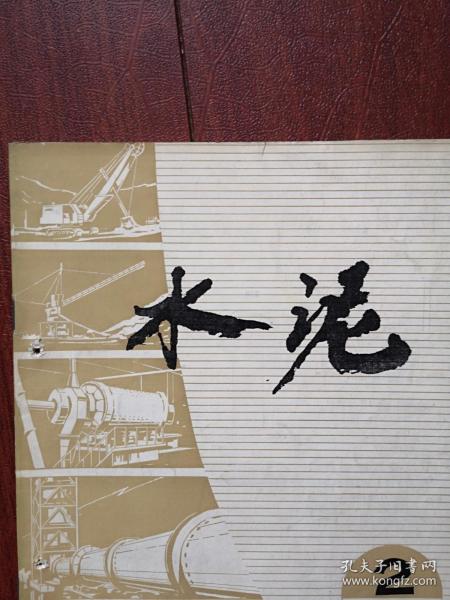 水泥
2
孔夫子旧书网
www.kongfz.com